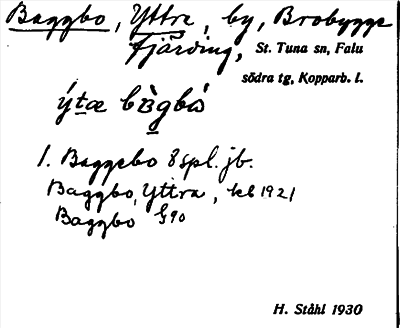 Baggbo, Yttra, by, Brobygge
Fjärding, St. Tuna sn, Falu
södra tg, Kopparb. l.
ýtæ
1. Baggebo 8 spl. jb.
Baggbo, Yttra, kb 1921
Baggbo G90
H. Ståhl 1930